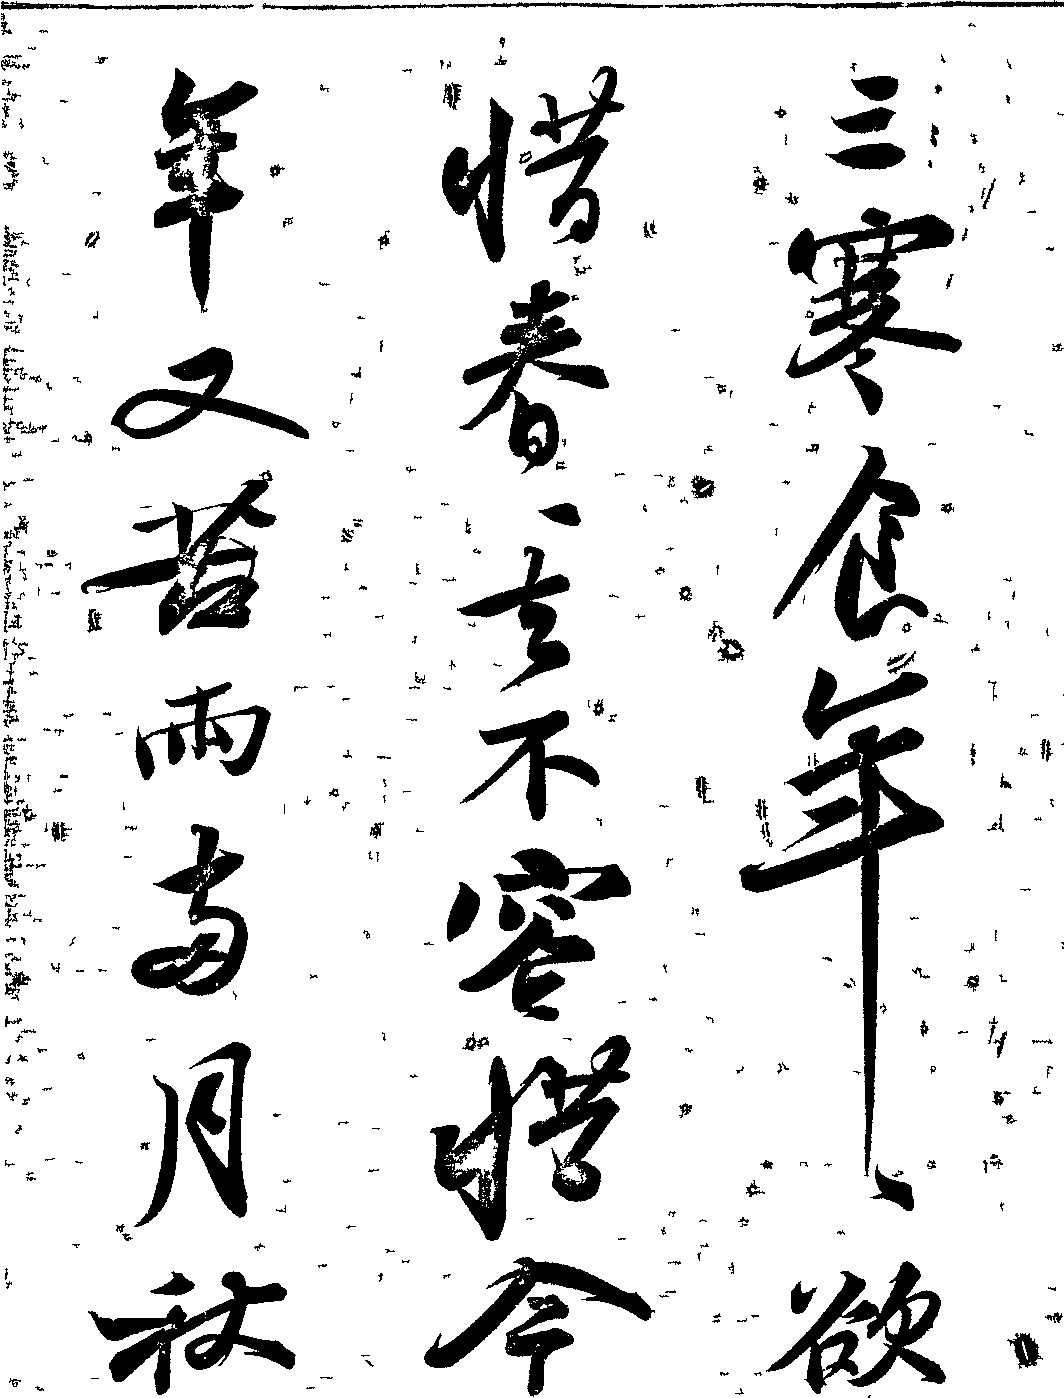 三寒食年、欲
惜春、去不容惜今
年又苦雨兩月秋